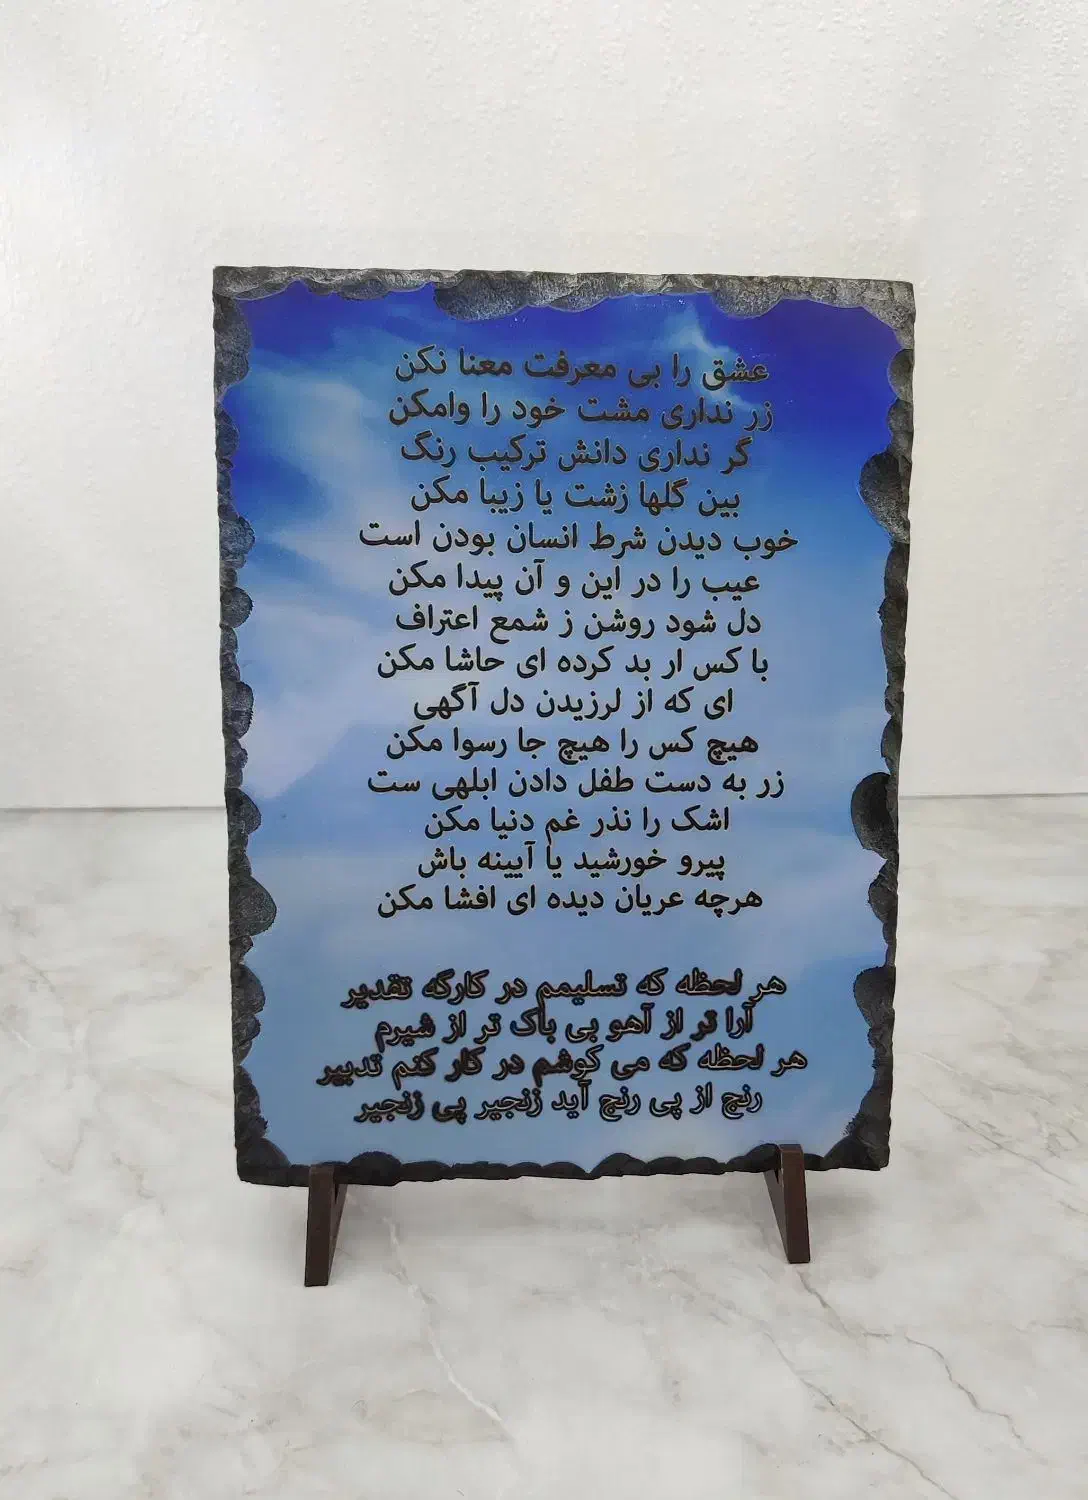 عشق را بی معرفت معنا نکن
زر نداری مشت خود را وامکن
گر نداری دانش ترکیب رنگ
بین گلها زشت یا زیبا مکن
خوب دیدن شرط انسان بودن است
عیب را در این و آن پیدا مکن
دل شود روشن ز شمع اعتراف
با کس ار بد کرده ای حاشا مکن
ای که از لرزیدن دل آگهی
هیچ کس را هیچ جا رسوا مکن
زر به دست طفل دادن ابلهی ست
اشک را نذر غم دنیا مکن
پیرو خورشید یا آیینه باش
هرچه عریان دیده ای افشا مکن
هر لحظه که تسلیمم در کارگه تقدیر
آرا تر از آهو بی باک تر از شیرم
هر لحظه که می کوشم در کار کنم تدبیر
رنج از پی رنج آید زنجیر پی زنجیر